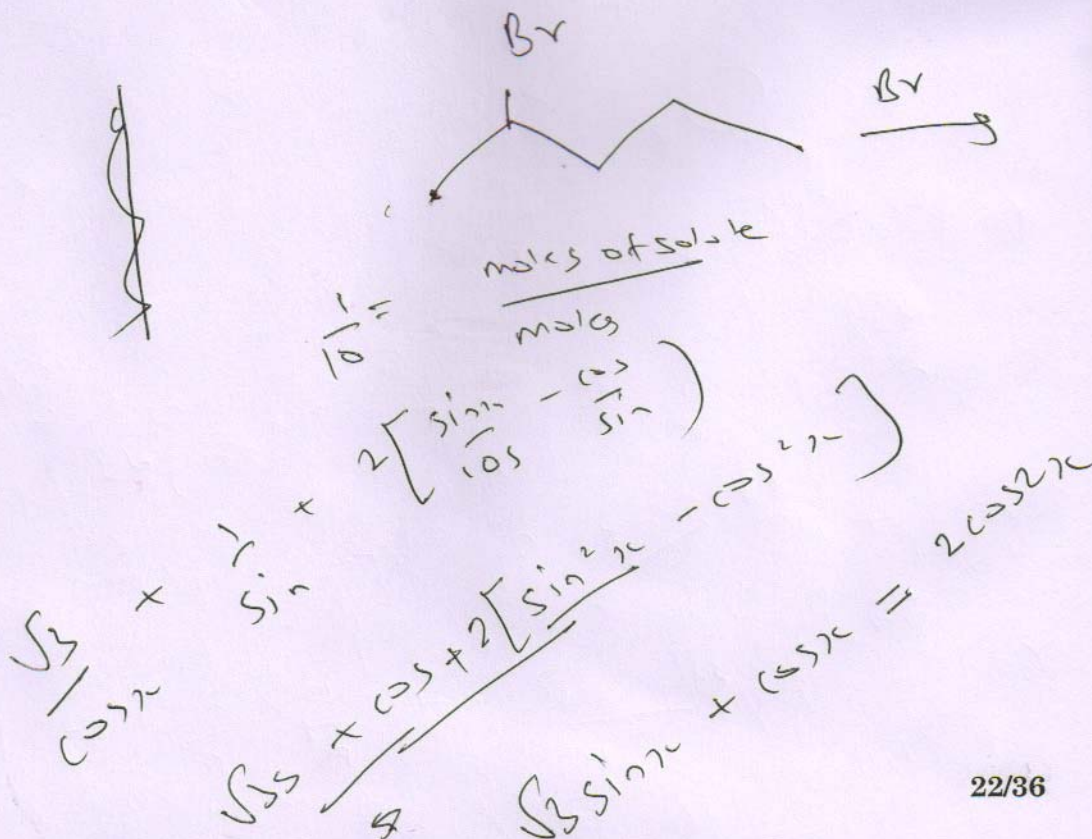 Br
Br
1/10 = moles of solute / moles
2[ sinx/cos - cos/sin )
√3/cosx + 1/sin +
√3s + cos + 2[sin²x - cos²x)
√3 sinx + cosx = 2cos2x
22/36